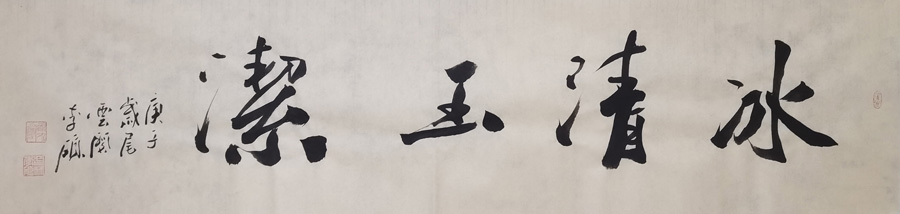 冰清玉潔
庚子
歲尾
雲閣
李碩